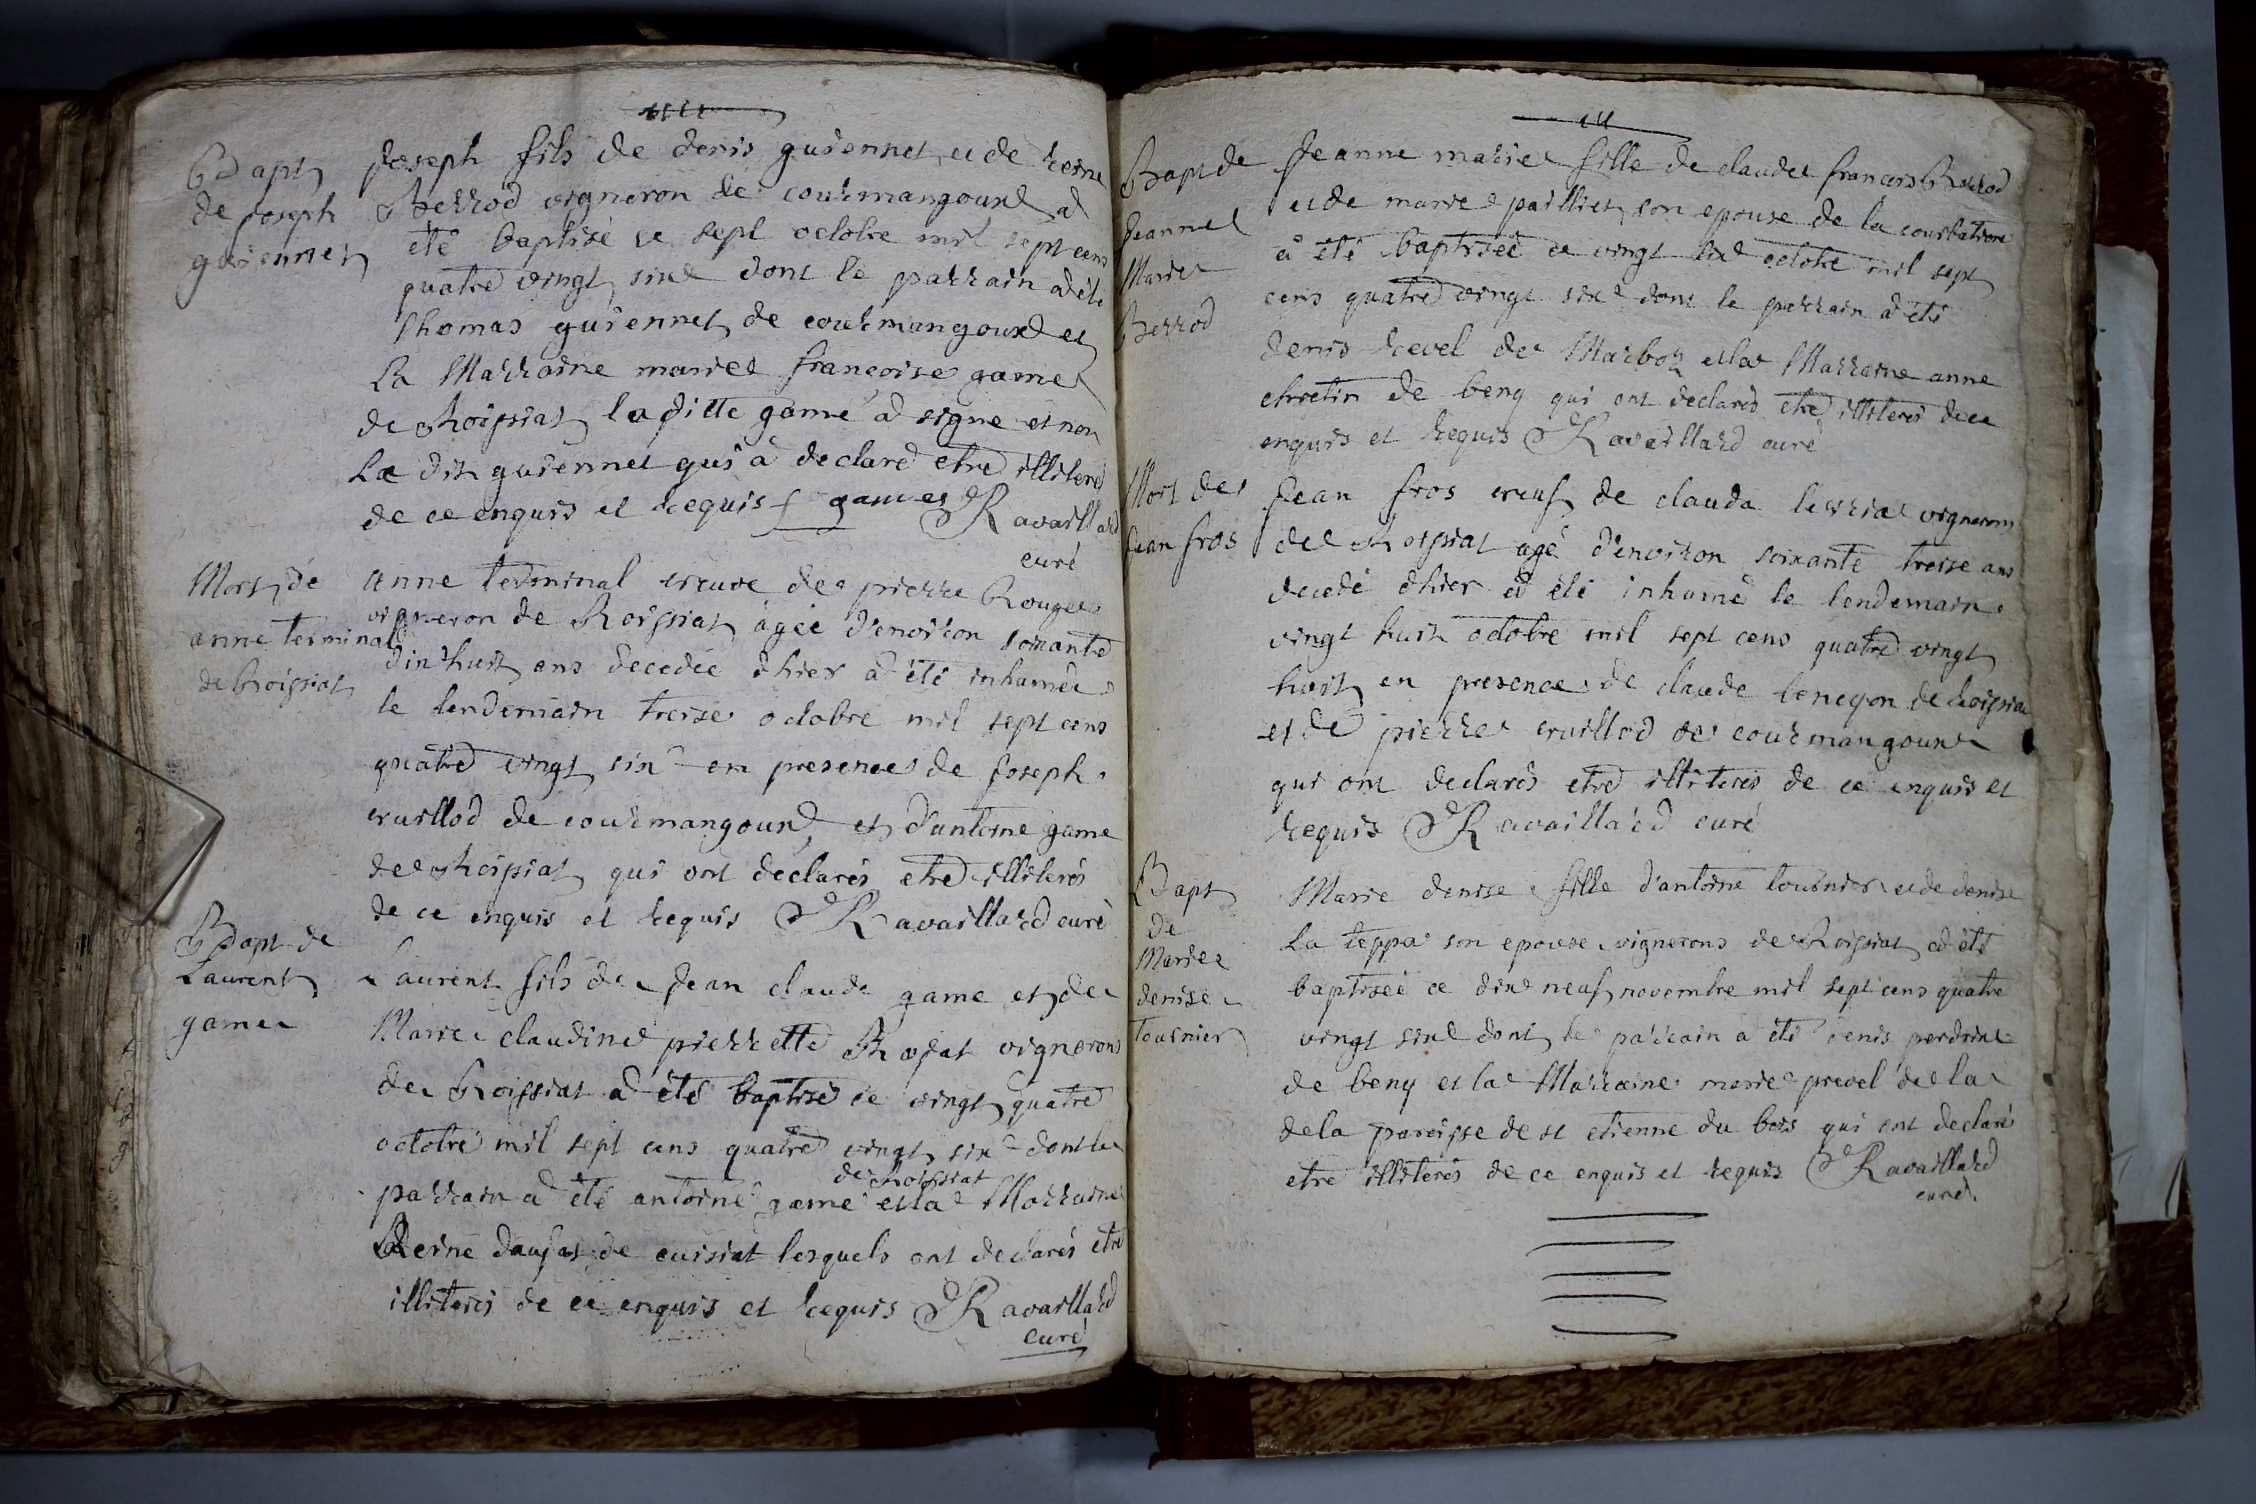 Bapt
de joseph
guiennet
joseph fils de denis guiennet et de reine
Berrod vigneron de courmangoux a
été baptisé ce sept octobre mil sept cens
quatre vingt six dont le parrain a été
thomas guiennet de courmangoux et
la Marraine marie francoise game
de Roissiat laditte game a signe et non
Le dit guiennet qui a declaré etre illiteré
de ce enquis et requis f game Ravaillard
curé
Mort de
anne terminal
de Roissiat
anne terminal veuve de pierre Rouge
vigneron de Roissiat agée d'environ soixante
dix huit ans decedée d'hier a été inhumée
le lendemain treise octobre mil sept cens
quatre vingt six en presence de joseph
vuillod de courmangoux et d'antoine game
de Roissiat qui ont declarés etre illiterés
de ce enquis et requis Ravaillard curé
Bapt de
Laurent
game
Laurent fils de jean claude game et de
Marie claudine pierrette vignerons
de Roissiat a été baptisé ce vingt quatre
octobre mil sept cens quatre vingt six dont le
de Roissiat
parrain a été antoine game et la Marraine
Reine de cuisiat lesquels ont declarés etre
illiterés de ce enquis et requis Ravaillard
curé
Bapt de
jeanne
Marie
Berrod
jeanne marie fille de claude francois Berrod
et de marie paillet son epouse de la courbatiere
a été baptisée ce vingt six octobre mil sept
cens quatre vingt six dont le parrain a été
denis revel de Marboz et la Marraine anne
chretin de beny qui ont declarés etre illiterés de ce
enquis et requis Ravaillard curé
Mort de
jean fros
jean fros veuf de clauda vignerons
de Roissiat agé d'environ soixante treise ans
decedé d'hier a été inhumé le lendemain
vingt huit octobre mil sept cens quatre vingt
huit en presence de claude bencyon de Roissiat
et de pierre vuillod de courmangoux
qui ont declarés etre illiterés de ce enquis et
requis Ravaillard curé
Bapt
de
Marie
denise
tournier
Marie denise fille d'antoine tournier et de denise
La teppa son epouse vignerons de Roissiat a été
baptisée ce dix neuf novembre mil sept cens quatre
vingt six dont le parrain a été denis perdrix
de beny et la Marraine marie prevel de la
dela paroisse de st etienne du bois qui ont declarés
etre illiterés de ce enquis et requis Ravaillard
curé